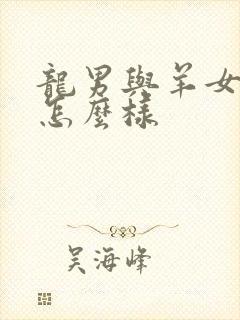 龍男與羊女
怎麼樣
吴海峰